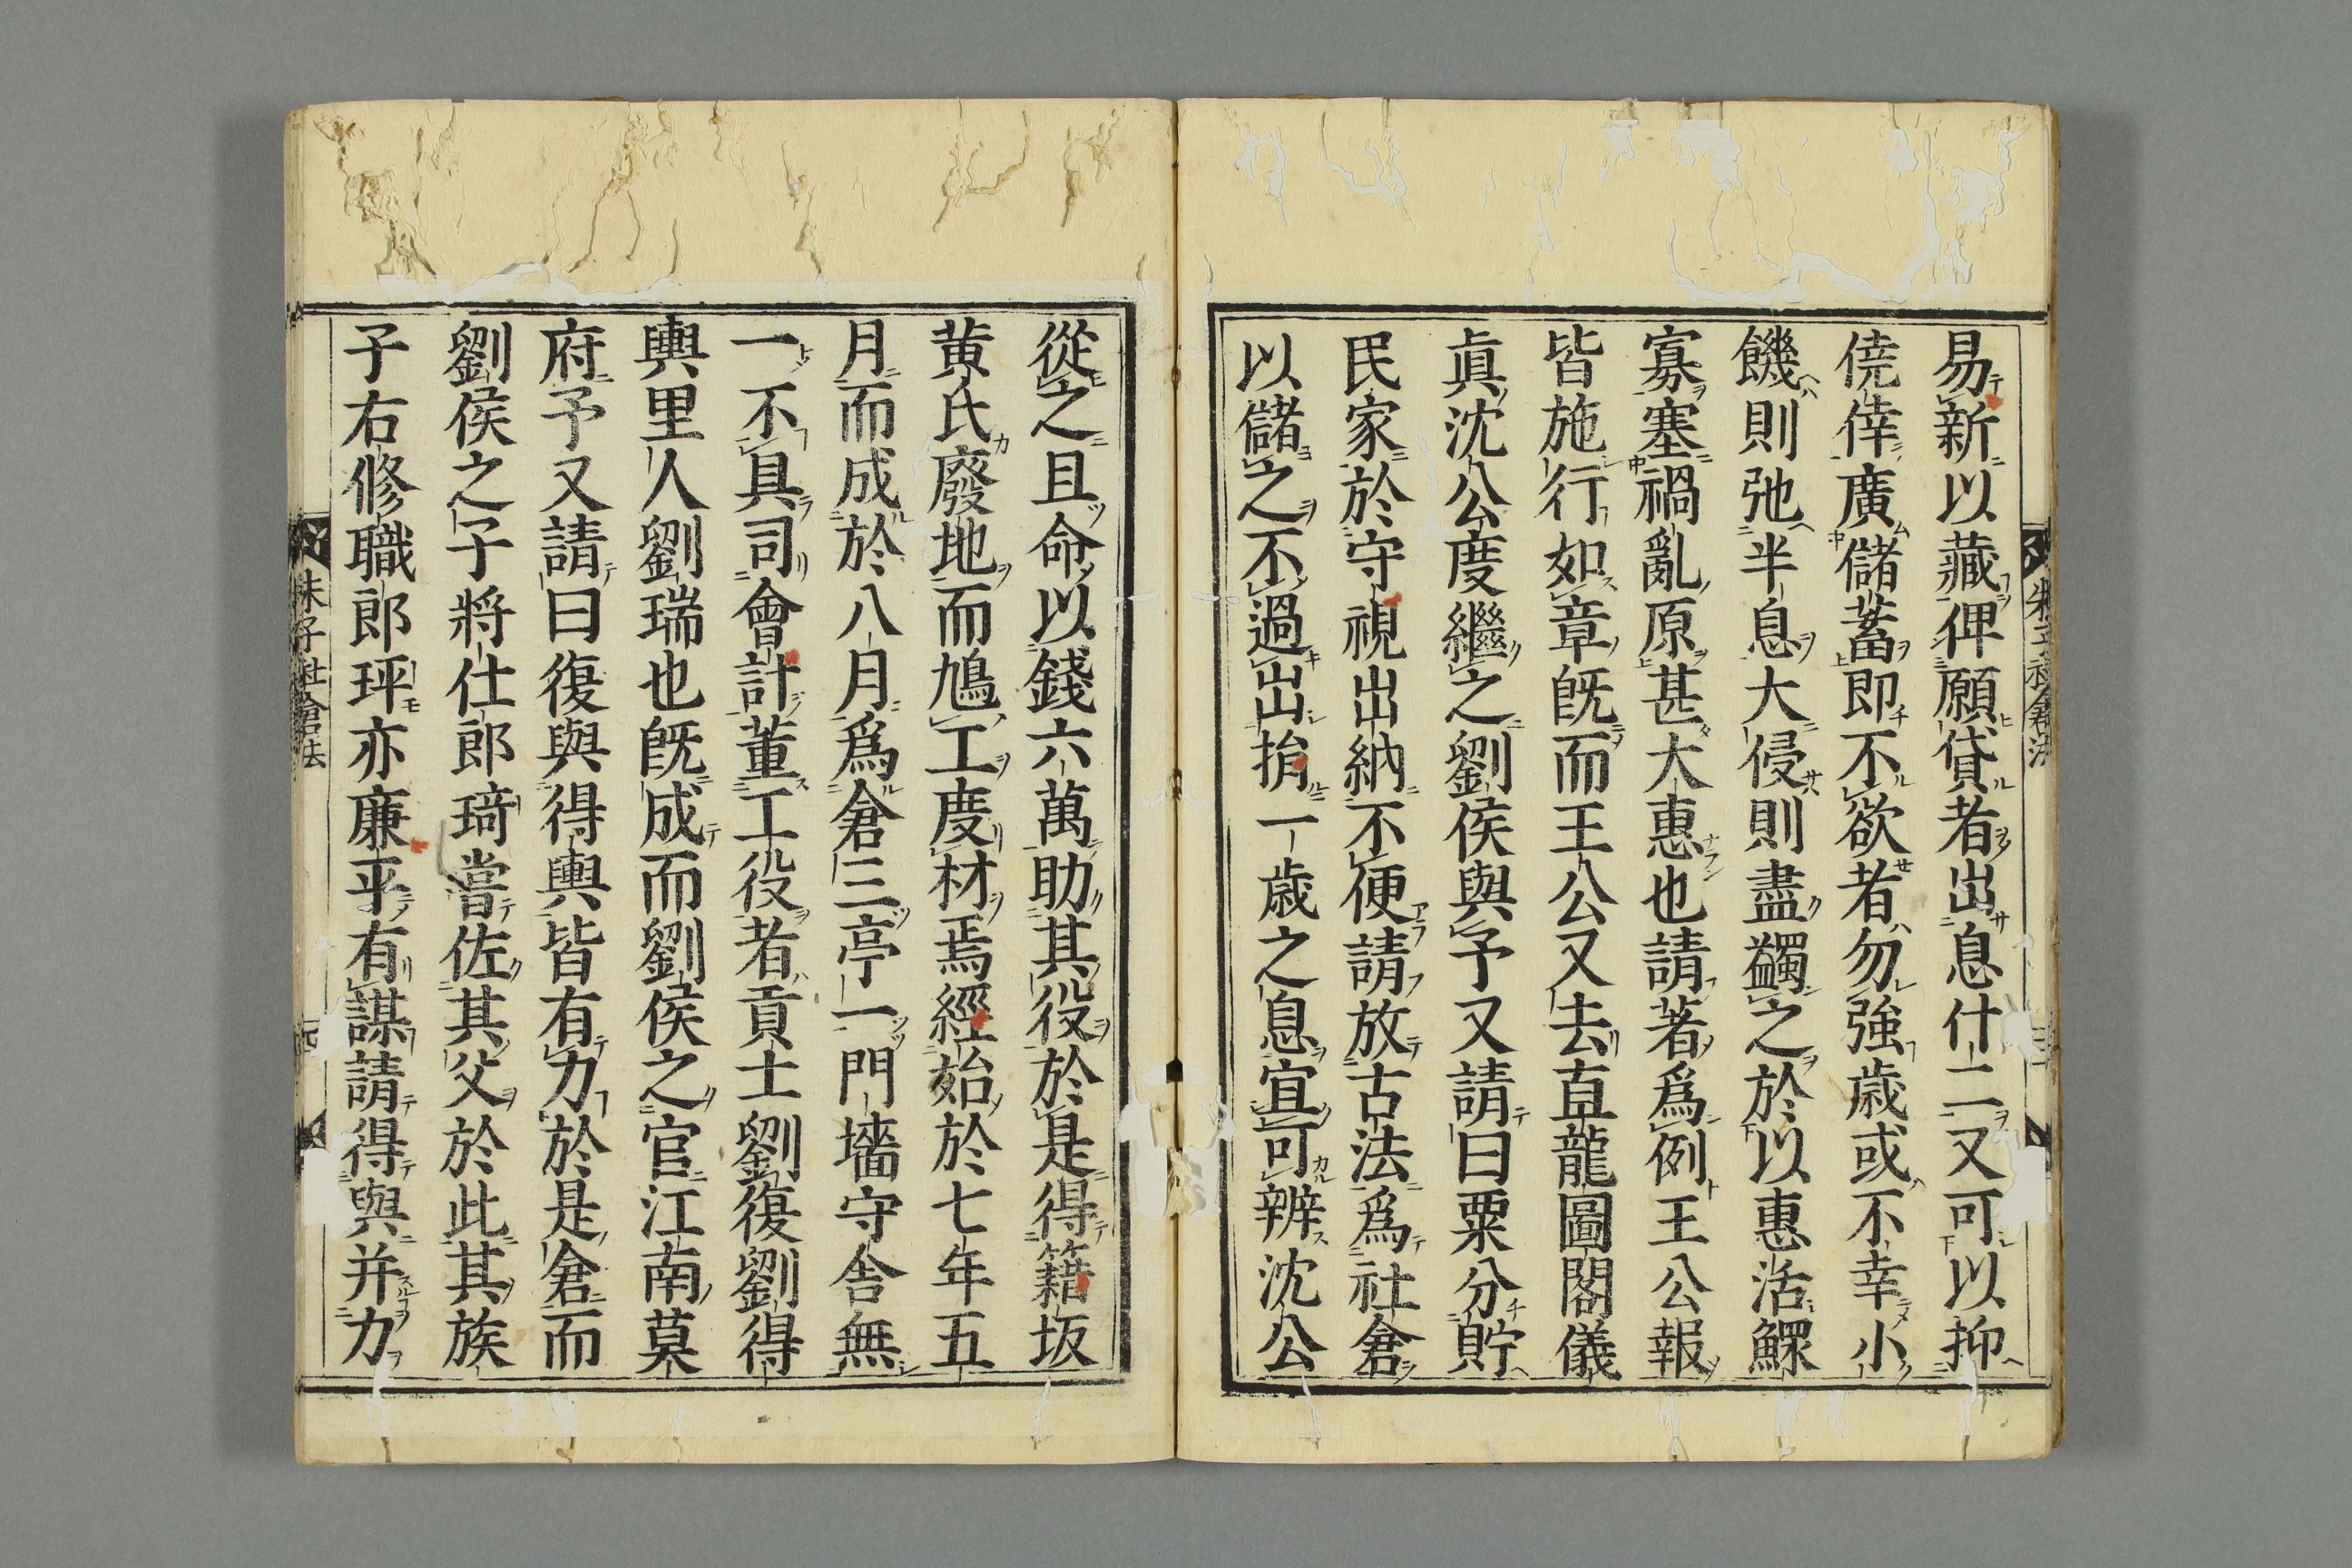 易新以藏俾願貸者出息什二又可以抑
僥倖廣儲蓄即不欲者勿強歲或不幸小
饑則弛半息大侵則盡蠲之於以惠活鰥
寡塞禍亂原甚大惠也請著爲例王公報
皆施行如章既而王公又去直龍圖閣儀
眞沈公度繼之劉侯與予又請曰粟分貯
民家於守視出納不便請放古法爲社倉
以儲之不過出捐一歲之息宜可辨沈公
從之且命以錢六萬助其役於是得籍坂
黄氏廢地而鳩工度材焉經始於七年五
月而成於八月爲倉三亭一門墻守舎無
一不具司會計董工役者貢士劉復劉得
輿里人劉瑞也既成而劉侯之官江南莫
府予又請曰復與得輿皆有力於是倉而
劉侯之子將仕郎琦嘗佐其父於此其族
子右修職郎玶亦廉平有謀請得與并力
朱子社倉法
四